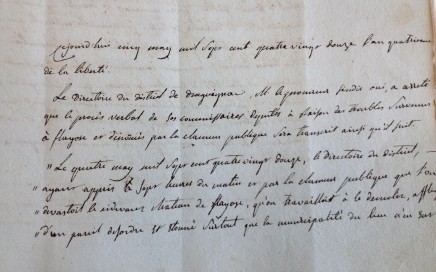 cejourdhui cinq may mil sept cent quatre vingt douze l'an quatrieme
de la liberté.
Le Directoire du district de draguignan, M procureur sindic oui, a arreté
que le procès verbal de ses commissaires deputés à raison des troubles survenus
à flayosc et denoncés par la clameur publique sera transcrit ainsi qu'il suit.
"Le quatre may mil sept cent quatre vingt douze, le directoire du district,
"ayant appris à sept heures du matin et par la clameur publique que l'on
"devastoit le chateau de flayosc, qu'on travailloit à le demolir,
"d'un pareil desordre et etonné surtout que la municipalité du lieu n'en eut